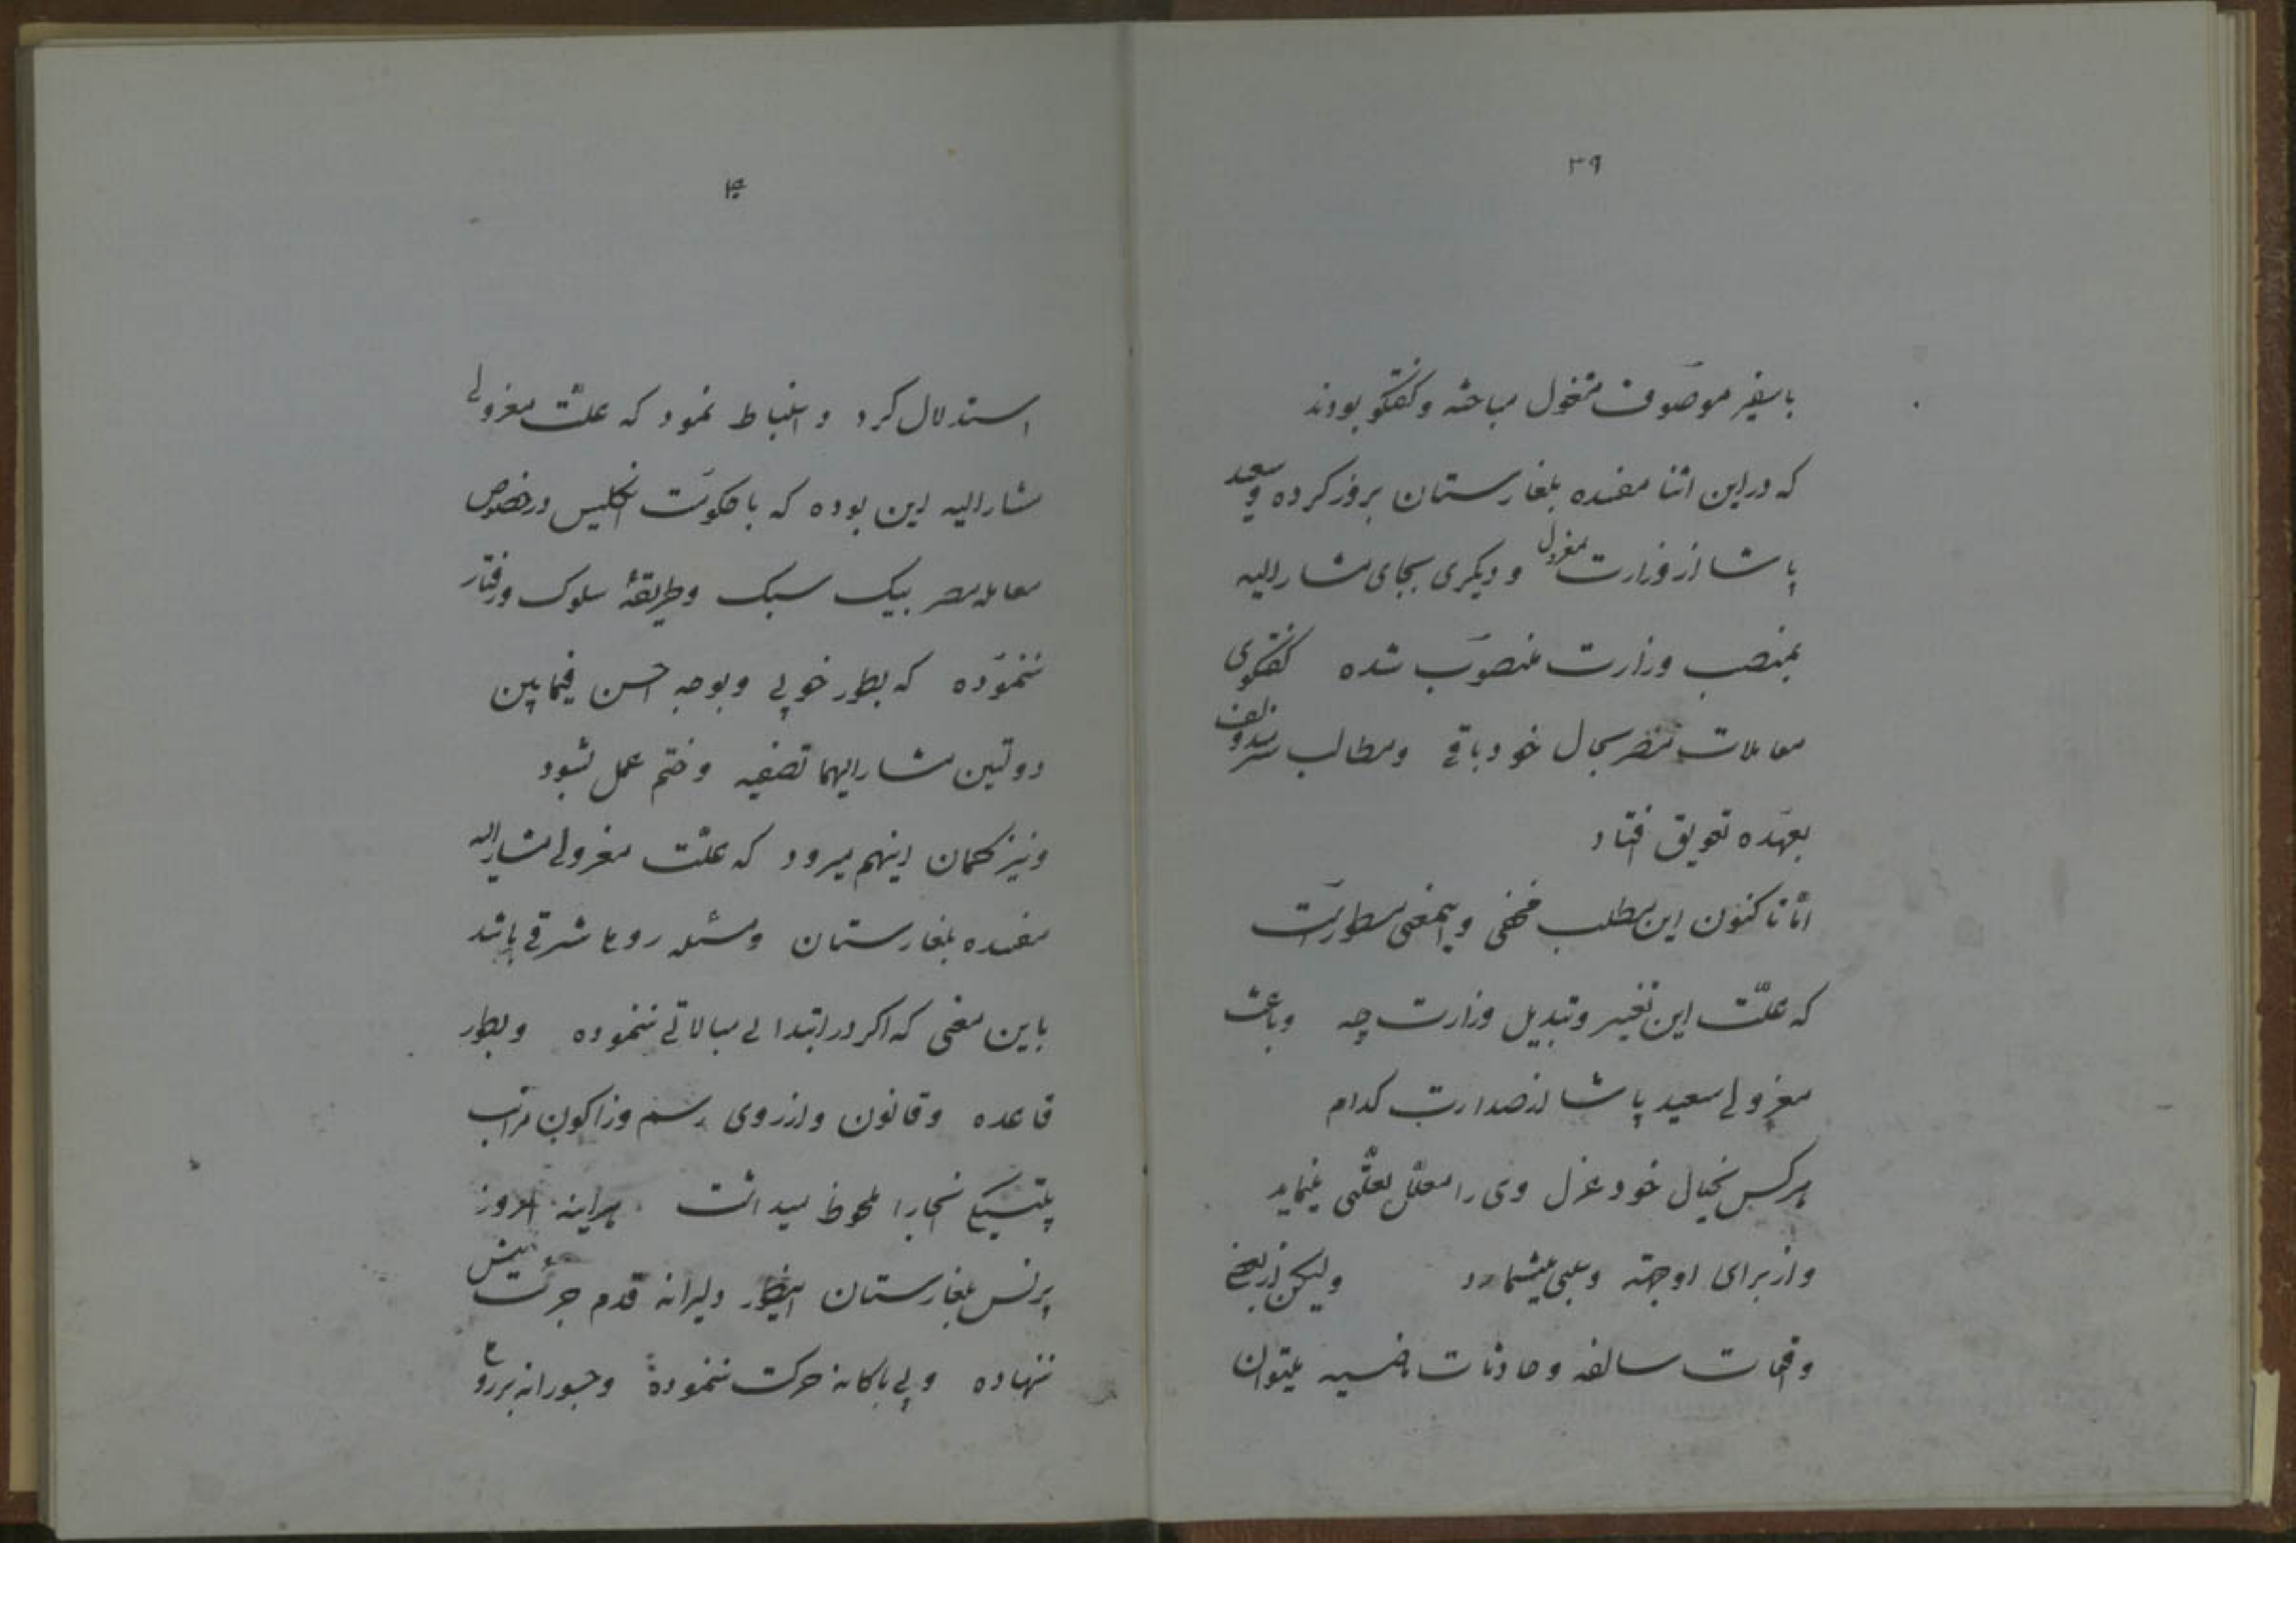 ۳۹
با سفیر موصوف مشغول مباحثه و گفتگو بودند
که در این اثنا مفسده بلغارستان بروز کرده و سعید
پاشا از وزارت معزول و دیگری بجای مشارالیه
بمنصب وزارت منصوب شده گفتگوی
معاملات مصر بحال خود باقی و مطالب
بعهده تعویق افتاد
اما تا کنون این مطلب مخفی و اینمعنی مطور است
که علّت این تغییر و تبدیل وزارت چه و باعث
معزولی سعید پاشا از صدارت کدام
هرکس بخیال خود عزل وی را معلّل بعلّتی مینماید
و از برای او جهته و سببی میشمارد ولیکن از بعضی
وقعات سالفه و حادثات ماضیه میتوان
۴۰
استدلال کرد و استنباط نمود که علّت معزولی
مشارالیه این بوده که با حکومت انگلیس در خصوص
معامله مصر بیک سبک و طریقهٔ سلوک و رفتار
ننموده که بطور خوبی و بوجه احسن فیمابین
دولتین مشارالیهما تصفیه و ختم عمل بشود
و نیز گمان اینهم میرود که علّت معزولی مشارالیه
مفسده بلغارستان و مسئله روملا شرقی باشد
باین معنی که اگر در ابتدا بی مبالاتی ننموده و بطور
قاعده و قانون و از روی رسم و زاکون مراتب
پلتیکی آنجا را ملحوظ میداشت هراینه امروز
پرنس بلغارستان اینطور دلیرانه قدم جرئت پیش
ننهاده و بی باکانه حرکت ننموده و جسورانه بر روی